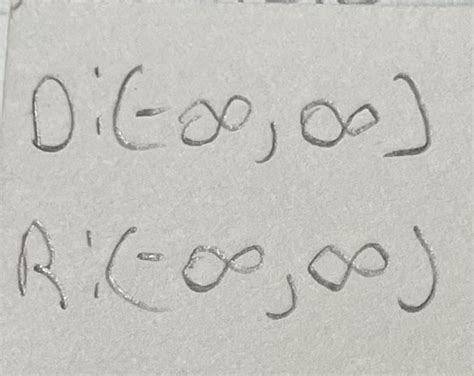 D:(-∞, ∞)
R:(-∞, ∞)